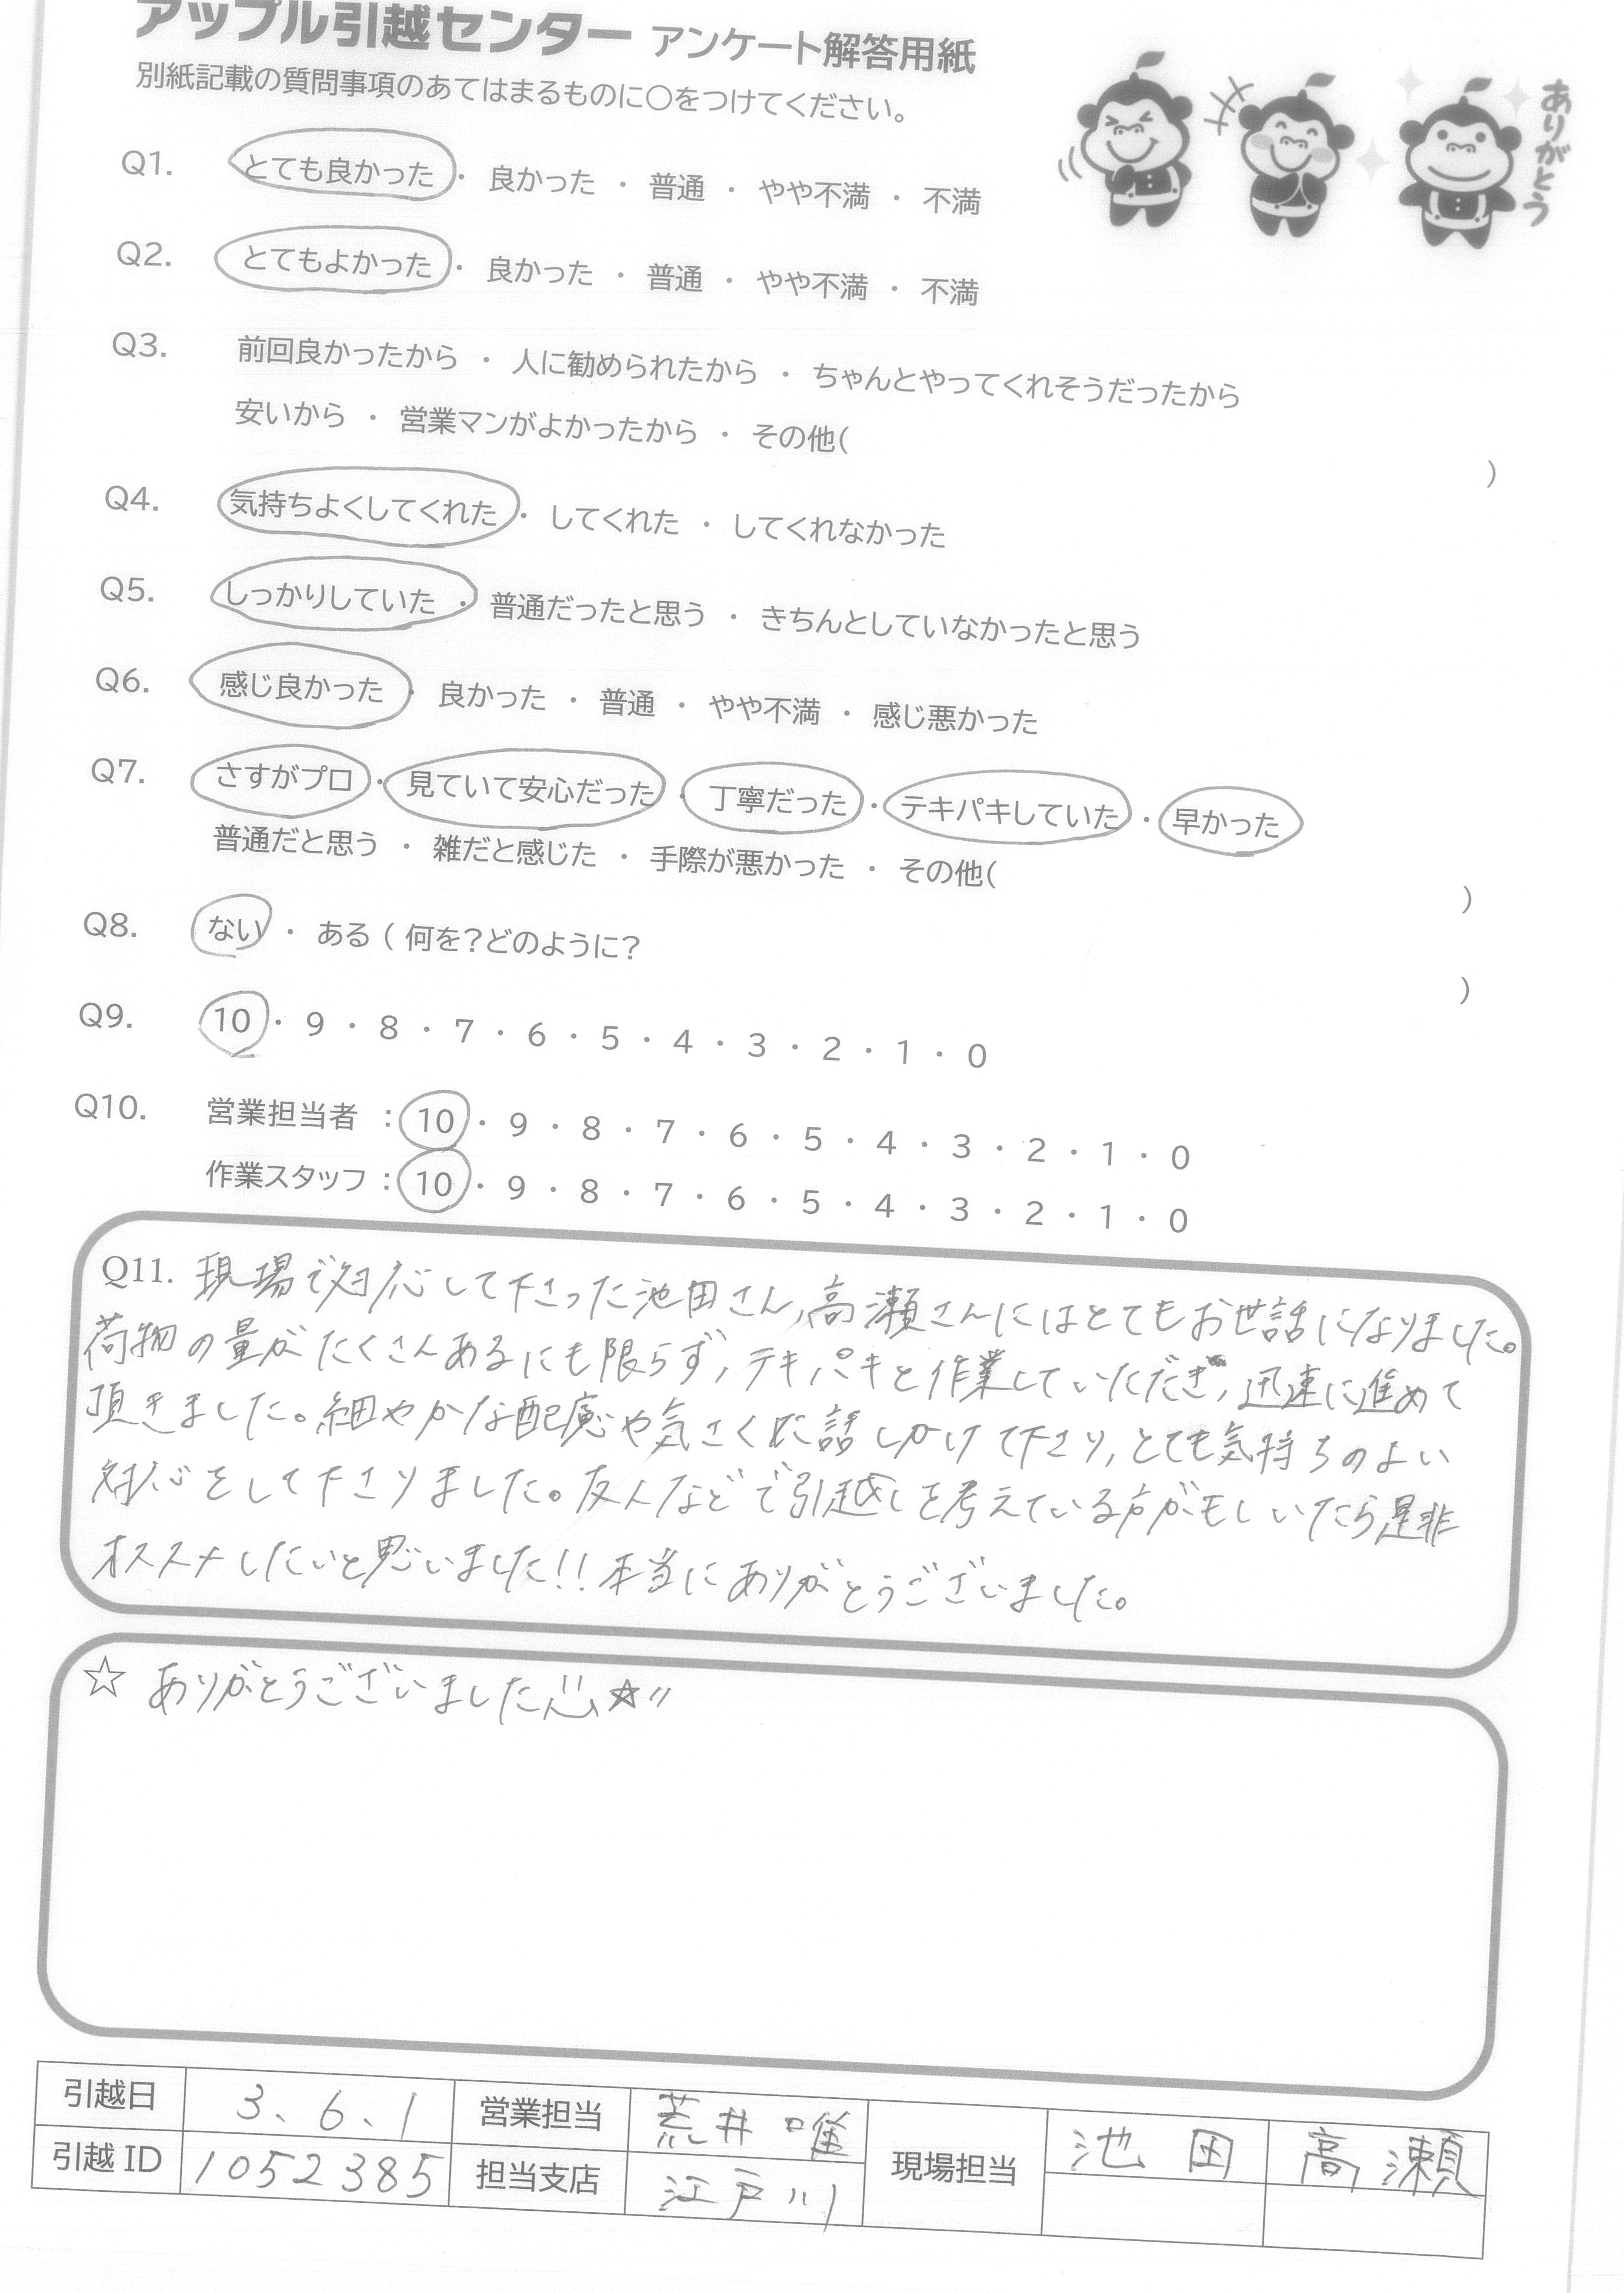 アップル引越センター アンケート解答用紙
別紙記載の質問事項のあてはまるものに〇をつけてください。
ありがとう
Q1. とても良かった ・ 良かった ・ 普通 ・ やや不満 ・ 不満
Q2. とてもよかった ・ 良かった ・ 普通 ・ やや不満 ・ 不満
Q3. 前回良かったから ・ 人に勧められたから ・ ちゃんとやってくれそうだったから
安いから ・ 営業マンがよかったから ・ その他( )
Q4. 気持ちよくしてくれた ・ してくれた ・ してくれなかった
Q5. しっかりしていた ・ 普通だったと思う ・ きちんとしていなかったと思う
Q6. 感じ良かった ・ 良かった ・ 普通 ・ やや不満 ・ 感じ悪かった
Q7. さすがプロ ・ 見ていて安心だった ・ 丁寧だった ・ テキパキしていた ・ 早かった
普通だと思う ・ 雑だと感じた ・ 手際が悪かった ・ その他( )
Q8. ない ・ ある ( 何を?どのように? )
Q9. 10 ・ 9 ・ 8 ・ 7 ・ 6 ・ 5 ・ 4 ・ 3 ・ 2 ・ 1 ・ 0
Q10. 営業担当者 : 10 ・ 9 ・ 8 ・ 7 ・ 6 ・ 5 ・ 4 ・ 3 ・ 2 ・ 1 ・ 0
作業スタッフ : 10 ・ 9 ・ 8 ・ 7 ・ 6 ・ 5 ・ 4 ・ 3 ・ 2 ・ 1 ・ 0
Q11. 現場で対応して下さった池田さん,高瀬さんにはとてもお世話になりました。
荷物の量がたくさんあるにも限らず,テキパキと作業していただき,迅速に進めて
頂きました。細やかな配慮や気さくに話しかけて下さり,とても気持ちのよい
対応をして下さりました。友人などで引越しを考えている方がもしいたら是非
オススメしたいと思いました!!本当にありがとうございました。
☆ ありがとうございました ☆〃
引越日 3、6、1 営業担当 荒井 唯 現場担当 池田 高瀬
引越 ID 1052385 担当支店 江戸川